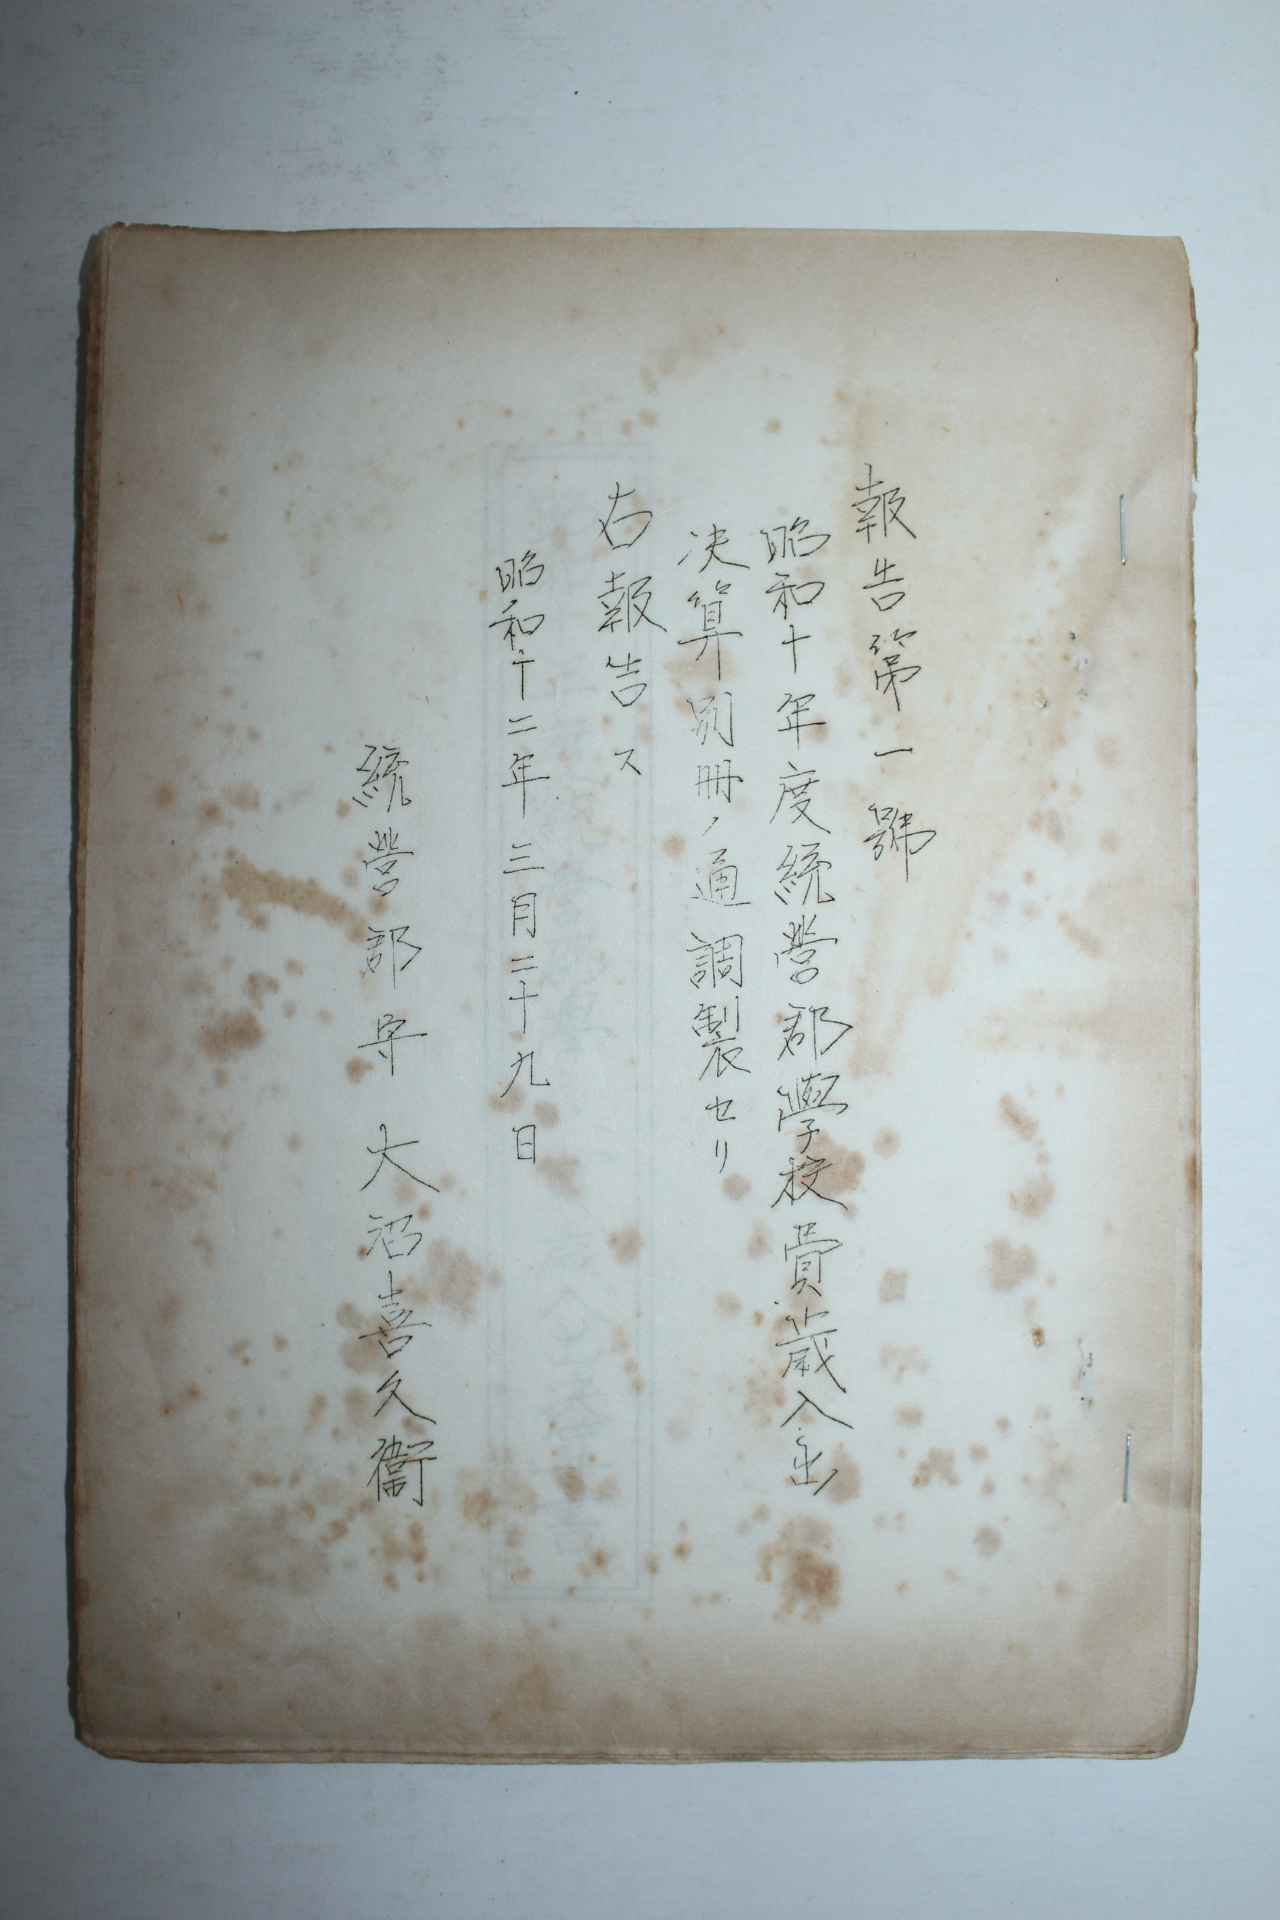 報告第一號
昭和十年度統營郡學校費歲入出
决算別冊ノ通調製セリ
右報告ス
昭和十二年三月二十九日
統營郡守 大沼喜久衞